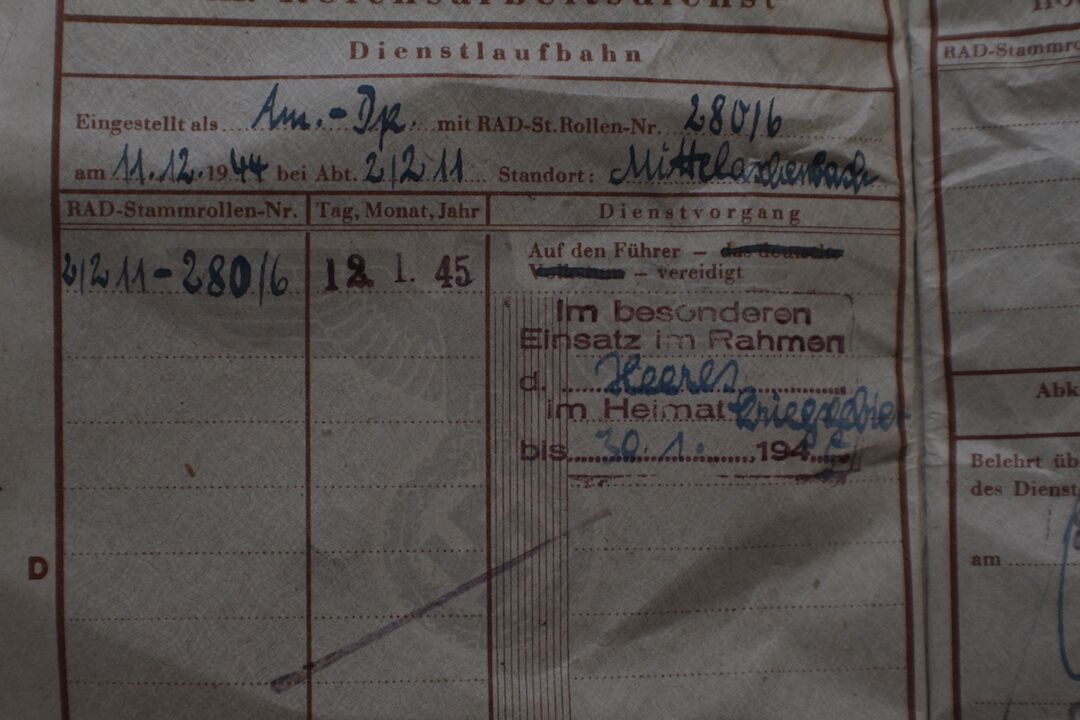 Reichsarbeitsdienst
Dienstlaufbahn
Eingestellt als Am.-Dp. mit RAD-St.Rollen-Nr. 280/6
am 11.12.1944 bei Abt. 2/211 Standort:
RAD-Stammrollen-Nr. Tag, Monat, Jahr Dienstvorgang
2/211-280/6 12. 1. 45 Auf den Führer – das deutsche
Volkstum – vereidigt
Im besonderen
Einsatz im Rahmen
d. Heeres
im Heimatkriegsgebiet
bis 30.1. 1945
D
RAD-Stammro
Abk
Belehrt üb
des Dienst
am